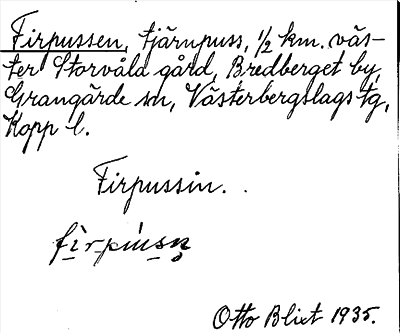 Firpussen, tjärnpuss, ½ km. väs-
ter Storvåla gård, Bredberget by,
Grangärde sn, Västerbergslags tg,
Kopp l.
Firpussin.
Otto Blixt 1935.